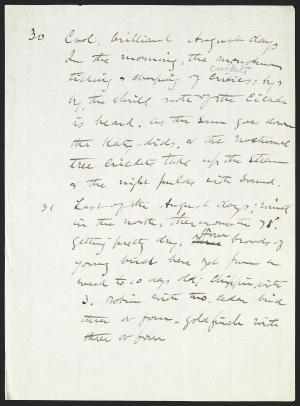 30 Cool, brilliant August days
In the morning, the monotonous
ticking & chirping of crickets
crickets by &
by, the shrill note of the Cicada
is heard. as the sun goes down
the Katy-dids, & the nocturnal
tree cricket take up the strain
& the night pulses with sound.
31 Last of the August days; wind
in the north, thermometer 78°
getting pretty dry. Four broods of
young birds here yet from a
week to 10 days old; Chippie, with
3. robin with two. cedar bird
three or four - goldfinch with
three or four